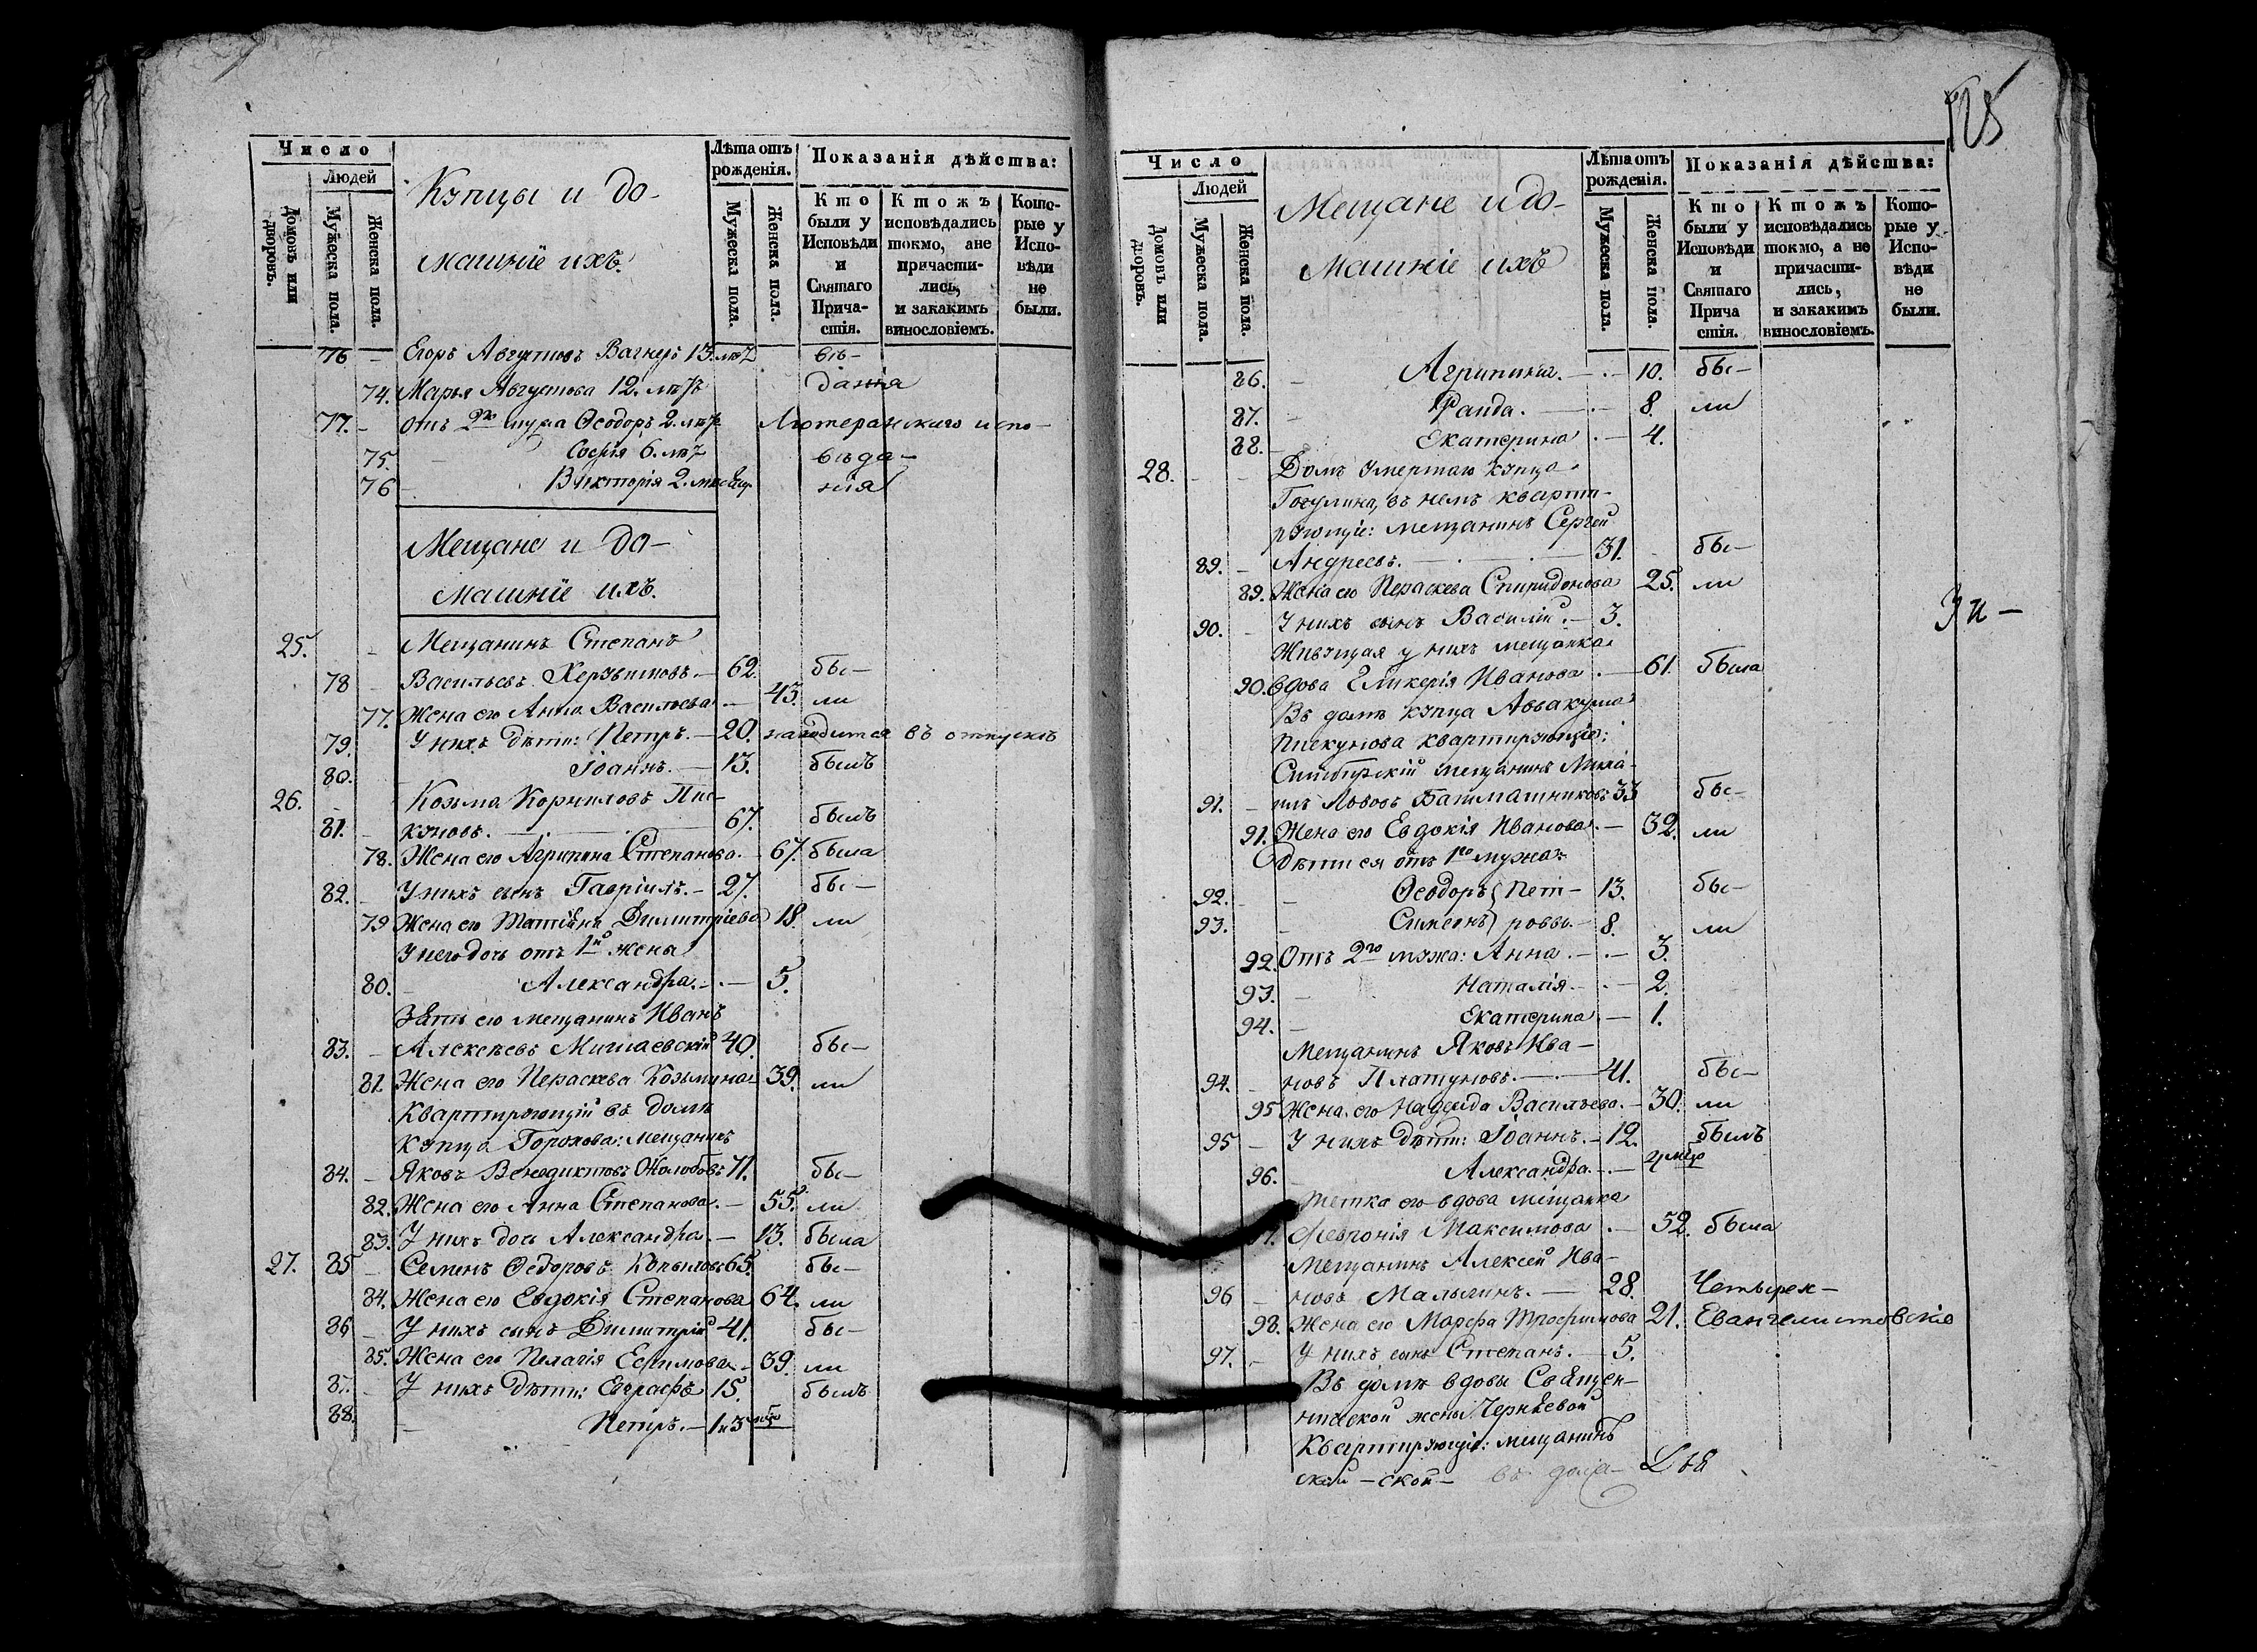 Число
Людей
Домовъ или дворовъ.
Мужеска пола.
Женска пола.
Купцы и до-
машніе ихъ.
Лѣта отъ рожденія.
Мужеска пола.
Женска пола.
Показанія дѣйства:
Кто были у Исповѣди и Святаго Прича-стія.
Ктожъ исповѣдались токмо, ане причасти-лись, и закакимъ винословіемъ.
Кото-рые у Испо-вѣди не были.
76 – Егоръ Августовъ Вагнеръ 13. лѣтъ вѣ-
74. Марья Августова 12. лѣтъ данія
77. – отъ Ѳеодоръ 2. лѣтъ Лютеранскаго испо-
75. – Софія 6. лѣтъ вѣда-
76 – Викторія 2. нія
Мещане и до-
машніе ихъ.
25. – Мещанинъ Степанъ
78 – Васильевъ – 62. бы-
77. Жена его Анна Васильева – 43. ли
79. У нихъ дѣти: Петръ. – 20. находится въ отпускѣ
80. – Іоаннъ. – 13. былъ
26. – Козьма Корниловъ Пис-
81. – куновъ. – 67. былъ
78. Жена его Агрипина Степанова. – 67. была
82. – У нихъ сынъ Гавріилъ. – 27. бы-
79 Жена его Татіана Димитріева 18. ли
У него дочь отъ 1й жены
80. – Александра. – 5.
Зять его мещанинъ Иванъ
83. – Алексѣевъ 40. бы-
81. Жена его Пераскева Козьмина 39. ли
Квартирующій въ домѣ
Купца Горохова: Мещанинъ
84. – Яковъ Венедиктовъ Жолобовъ 71. бы-
82. Жена его Анна Степанова. – 55. ли
83. У нихъ дочь Александра. – 13. была
27. 85 – Семенъ Ѳедоровъ Копыловъ 65. бы-
84. Жена его Евдокія Степанова 64. ли
86 – У нихъ сынъ Димитрій 41. бы-
85. Жена его Пелагія Ефимова. – 39. ли
87. – У нихъ дѣти: Евграфъ 15. былъ
88. – Петръ. – 1 и 3
125
Число
Людей
Домовъ или дворовъ.
Мужеска пола.
Женска пола.
Мещане и до-
машніе ихъ
Лѣта отъ рожденія.
Мужеска пола.
Женска пола.
Показанія дѣйства:
Кто были у Исповѣди и Святаго Прича стія.
Ктожъ исповѣдались токмо, а не причасти-лись, и закакимъ винословіемъ.
Кото-рые у Испо-вѣди не были.
86. – Агрипина. – 10. бы-
87. – Раида. – 8. ли
88. – Екатерина. – 4.
28. – – Домъ умершаго купца
въ немъ кварти-
рующіе: мещанинъ Сергей
89. – Андреевъ. – 31. бы-
89. Жена его Пераскева Спиридонова 25. ли
90. – У нихъ сынъ Василій. – 3.
Живущая у нихъ мещанка
90. вдова Гликерія Иванова. – 61. была
Въ домѣ купца Аввакума
Пискунова квартирующіе:
Симбирскій мещанинъ Миха-
91. – илъ Львовъ Башмашниковъ 33 бы-
91. Жена его Евдокія Иванова. – 32. ли
Дѣти ея отъ 1го мужа
92. – Ѳеодоръ Пет- 13. бы-
93. – Симеонъ ровы. – 8. ли
92. Отъ 2го мужа: Анна. – 3.
93. – Наталія. – 2.
94. – Екатерина. – 1.
Мещанинъ Яковъ Ива-
94. – новъ Платуновъ. – 41. бы-
95 Жена его Надежда Васильева. – 30. ли
95 – У нихъ дѣти: Іоаннъ. – 12. былъ
96. – Александра. – 4
Тетка его вдова мещанка
97. Февронія Максимова. – 52. была
Мещанинъ Алексей Ива-
96 – новъ Малылинъ. – 28. Четырех-
98. Жена его Марфа Трофимова 21. Евангелистовскіе
97. – У нихъ сынъ Степанъ. – 5.
Въ домѣ вдовы Священ-
нической жены Черняевой
Квартирующіе: мещанинъ